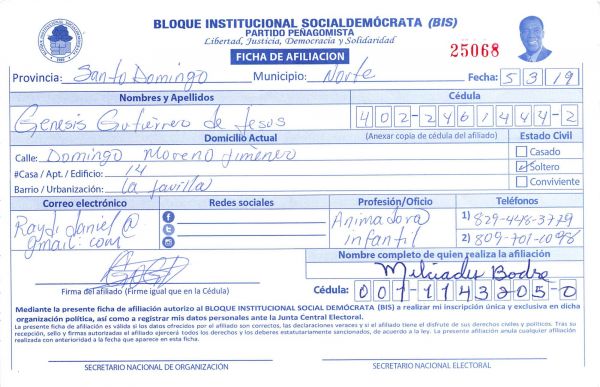 BLOQUE INSTITUCIONAL SOCIALDEMÓCRATA (BIS)
PARTIDO PEÑAGOMISTA
Libertad, Justicia, Democracia y Solidaridad
FICHA DE AFILIACION
25068
Provincia: Santo Domingo Municipio: Norte Fecha: 5 3 19
Nombres y Apellidos Cédula
Genesis Gutierrero de Jesus 402-2461444-2
Domicilio Actual (Anexar copia de cédula del afiliado) Estado Civil
Calle: Domingo Moreno Jimenez Casado
#Casa / Apt. / Edificio: 14 Soltero
Barrio / Urbanización: la Javilla Conviviente
Correo electrónico Redes sociales Profesión/Oficio Teléfonos
Raydi daniel @ Animadora 1) 829-448-3779
gmail.com infantil 2) 809-701-1098
Nombre completo de quien realiza la afiliación
Milciady
Firma del afiliado (Firme igual que en la Cédula) Cédula: 001-1143205-0
Mediante la presente ficha de afiliación autorizo al BLOQUE INSTITUCIONAL SOCIAL DEMÓCRATA (BIS) a realizar mi inscripción única y exclusiva en dicha
organización política, así como a registrar mis datos personales ante la Junta Central Electoral.
La presente ficha de afiliación es válida si los datos ofrecidos por el afiliado son correctos, las declaraciones veraces y si el afiliado tiene el disfrute de sus derechos civiles y políticos. Tras su
recepción, sello y firmas autorizadas el afiliado ejercerá todos los derechos y los deberes estatutariamente sancionados, de acuerdo a la ley. La presente afiliación anula cualquier afiliación
realizada con anterioridad a la fecha que aparece en esta ficha.
SECRETARIO NACIONAL DE ORGANIZACIÓN SECRETARIO NACIONAL ELECTORAL